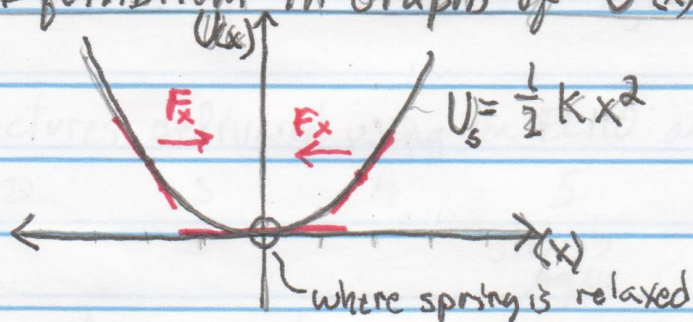 Equilibrium in Graphs of U(x)
U(x)
Fx
Fx
Us = 1/2 K x²
(x)
where spring is relaxed